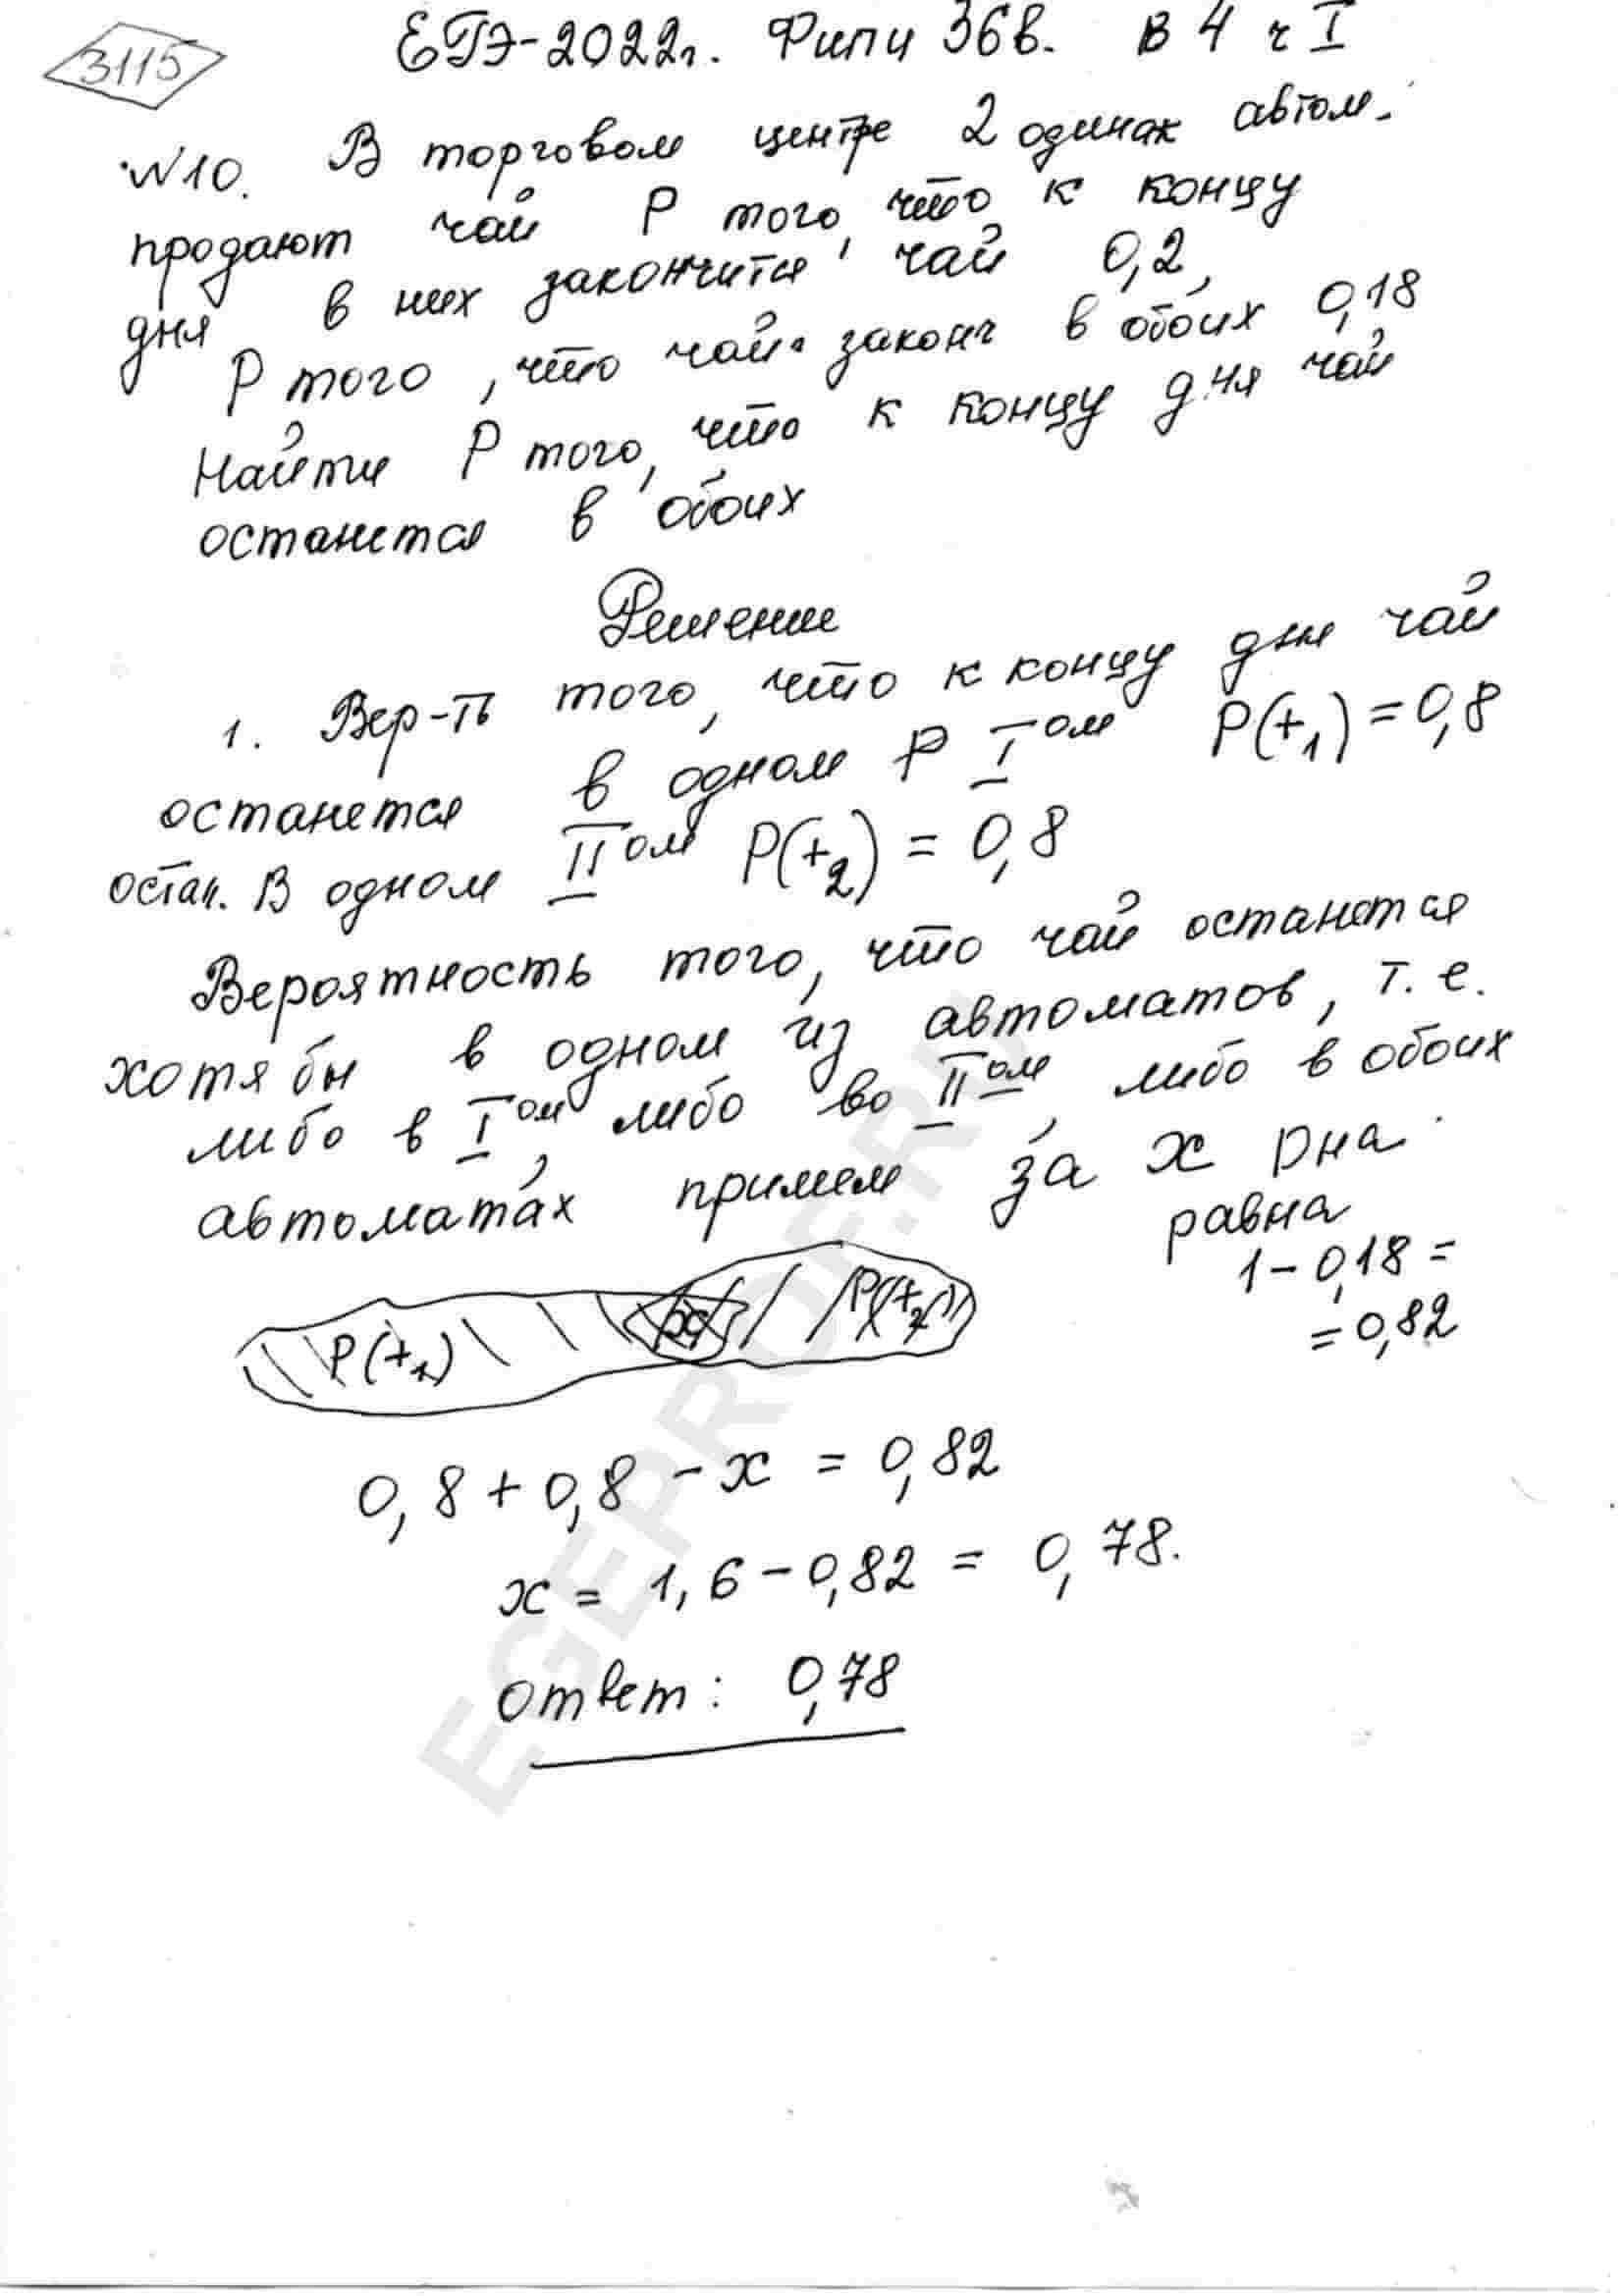 3115
ЕГЭ-2022г. Фипи 36в. В 4 ч I
№10. В торговом центре 2 одинак автом.
продают чай Р того, что к концу
дня в них закончится чай 0,2,
Р того, что чай законч в обоих 0,18
Найти Р того, что к концу дня чай
останется в обоих
Решение
1. Вер-ть того, что к концу дня чай
останется в одном Р Iом P(+1) = 0,8
остан. в одном IIом P(+2) = 0,8
Вероятность того, что чай останется
хотя бы в одном из автоматов, т.е.
либо в Iом, либо во IIом, либо в обоих
автоматах примем за х рна
равна
1-0,18=
=0,82
P(+1) x P(+2)
0,8+0,8-x=0,82
x=1,6-0,82=0,78.
ответ: 0,78
EGEPROF.RU